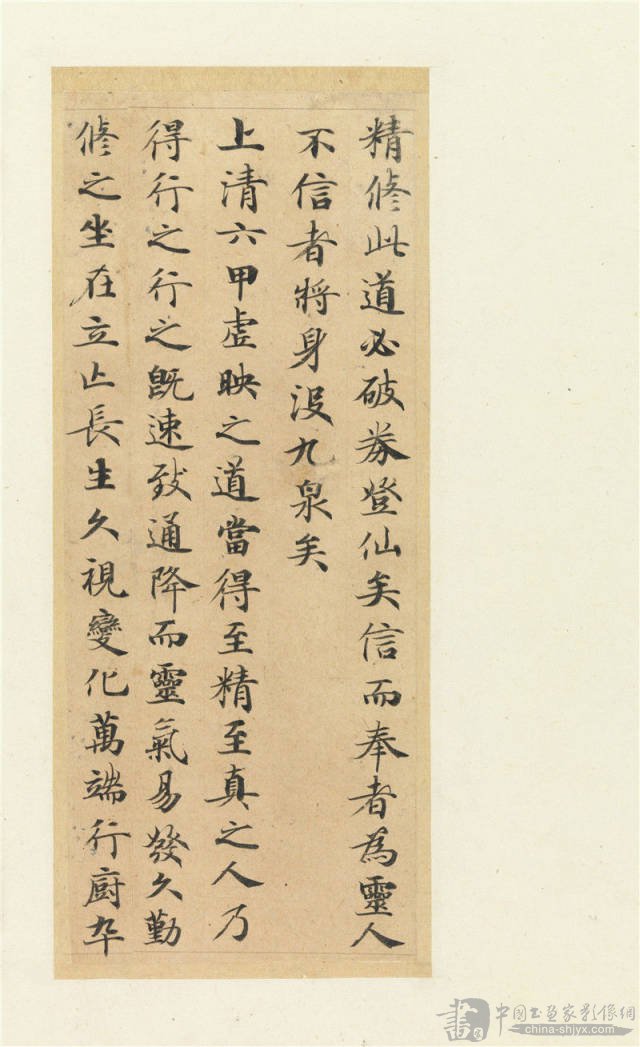 精脩此道必破券登仙矣信而奉者為靈人
不信者將身沒九泉矣
上清六甲虛映之道當得至精至真之人乃
得行之行之既速致通降而靈氣易發久勤
脩之坐在立亡長生久視變化萬端行廚卒
書 中國书画家影像網
china-shjyx.com